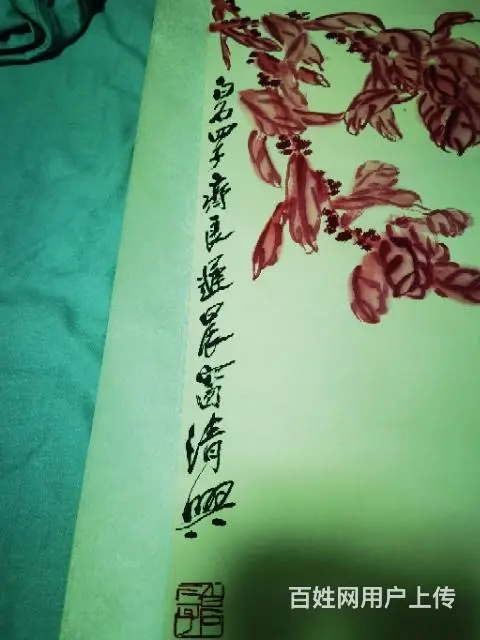 白石四子齊良遲晨窗清興
百姓网用户上传